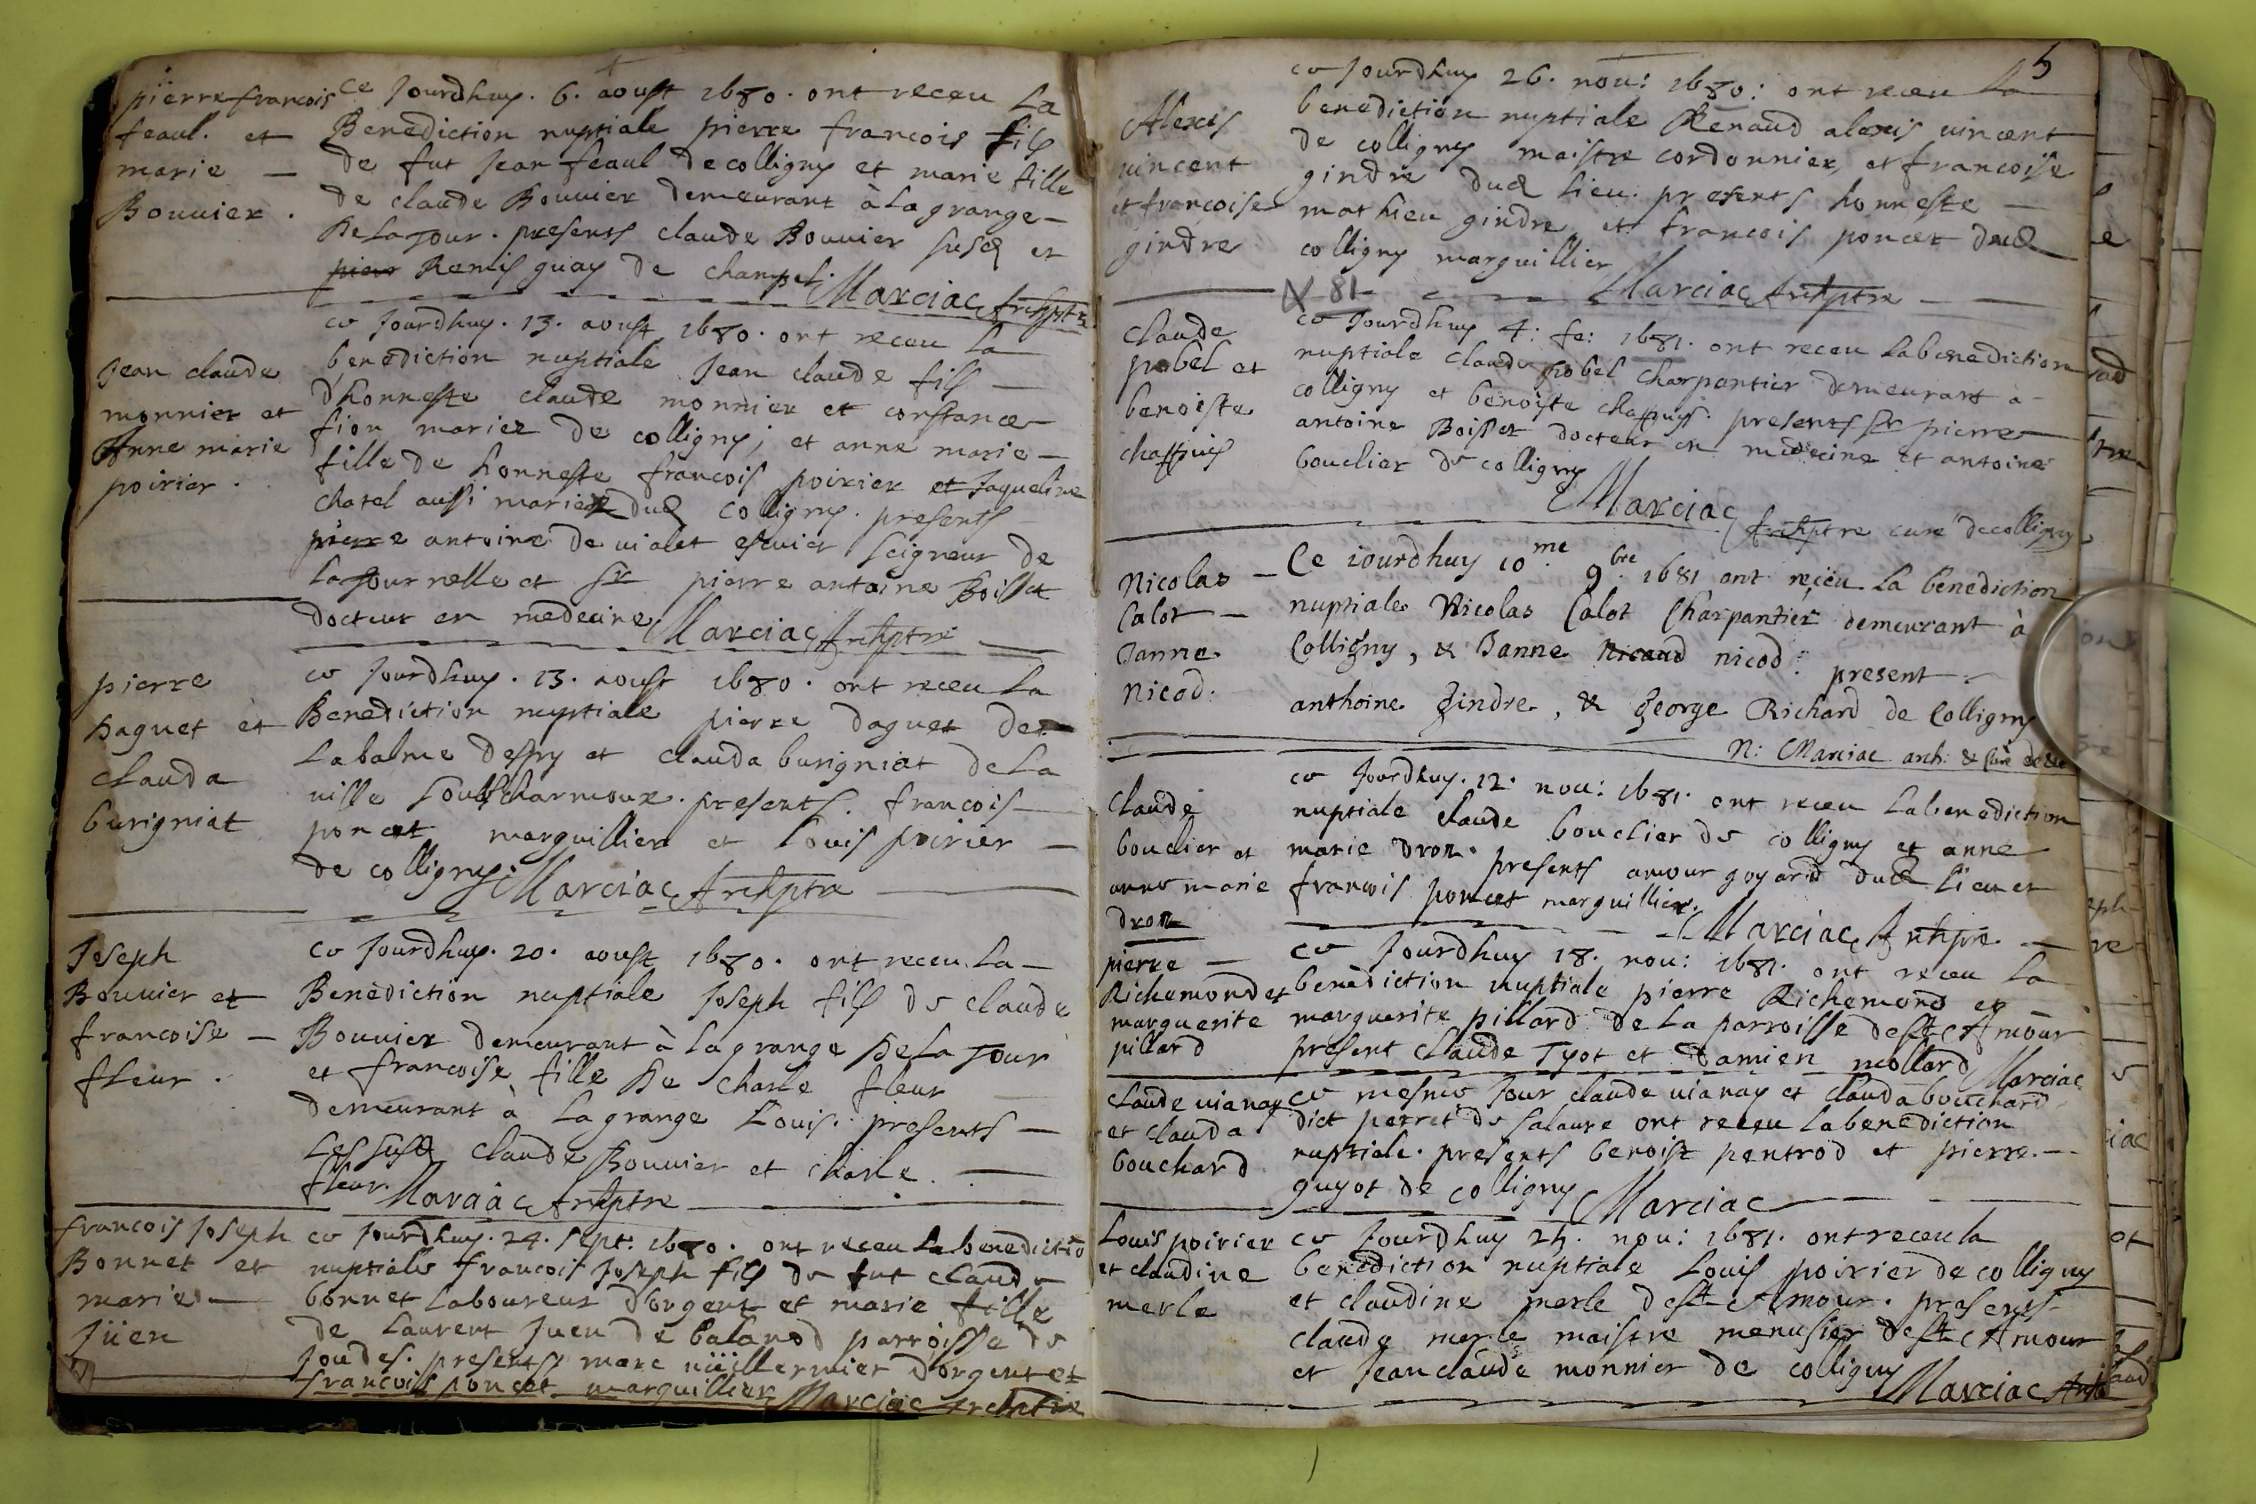 pierre francois
feaul. et
marie —
Bouvier .
ce Jourdhuy. 6. aoust 1680. ont receu La
Benediction nuptiale pierre francois fils
de fut Jean feaul de colligny et marie fille
de claude Bouvier demeurant à La grange —
De La Tour. presents claude Bouvier susd et
Remis guay de
Marciac Archptre
Jean claude
monnier et
Anne marie
poirier .
ce Jourdhuy. 13. aoust 1680. ont receu La
benediction nuptiale Jean claude fils —
d'honneste claude monnier et constance
fion mariez de colligny; et anne marie —
fille de honneste francois poirier et Jaqueline
chatel aussi mariez dud colligny. presents
pierre antoine de vialet escuier seigneur de
La Tournelle et sr pierre antoine Boisset
docteur en medecine Marciac Archptre
pierre
Daguet et
Clauda
burigniat
ce Jourdhuy. 13. aoust 1680. ont receu La
Benediction nuptiale pierre daguet de
Labalme despy et clauda burigniat de La
ville soubscharmoux. presents. francois
poncet marguillier et Louis poirier —
de colligny. Marciac Archptre
Joseph
Bouvier et
francoise —
fleur .
ce Jourdhuy. 20. aoust 1680. ont receu La —
Benediction nuptiale Joseph fils de claude
Bouvier demeurant à La grange De La Tour
et francoise fille De charle fleur
demeurant à La grange Louis. presents —
Les susd claude Bouvier et charle
fleur. Marciac Archptre
francois Joseph
Bonnet et
marie —
Jüen
ce Jourdhuy. 24. sept. 1680. ont receu La benedictiō
nuptiale francois Joseph fils de fut claude
bonnet Laboureur d'orgent et marie fille
de Laurent Juen de balanod parroisse de
Joudes. presents marc vüillermier d'orgent et
francois poncet marguillier Marciac Archptre
5
Alexis
vincent
et francoise
gindre
ce Jourdhuy 26. nou: 1680: ont receu La
benediction nuptiale Renaud alexis vincent
de colligny maistre cordonnier, et francoise
gindre dud Lieu. presents honneste —
mathieu gindre et francois poncet dud
colligny marguillier
Marciac Archptre
81
claude
pobel et
benoiste
chappuis
ce Jourdhuy 4: fe: 1681. ont receu La benediction
nuptiale claude pobel charpantier demeurant a
colligny et benoiste chappuis. presents sr pierre
antoine Boisset docteur en medecine et antoine
bouclier de colligny
Marciac Archptre curé de colligny
Nicolas —
Calot —
Janne
Nicod.
Ce iourdhuy 10me. 9bre. 1681 ont reçeu La benediction
nuptiale Nicolas Calot Charpantier demeurant à
Colligny, & Janne Nicaud nicod: present.
anthoine Gindre, & George Richard de Colligny
N: Marciac arch: & Curé
claude
bouclier et
anne marie
dron
ce Jourdhuy. 12. nou: 1681. ont receu La benediction
nuptiale claude bouclier de colligny et anne
marie dron. presents amour goyard dud Lieu et
francois poncet marguillier.
Marciac Archptre
pierre —
Richemond et
marguerite
pillard
ce Jourdhuy 18. nou: 1681. ont receu La
benediction nuptiale pierre Richemond et
marguerite pillard de La parroisse de st Amour
present Claude Tyot et Damien mollard Marciac
Claude vianay
et clauda
bouchard
ce mesme Jour claude vianay et clauda bouchard
dict perret de salaure ont receu La benediction
nuptiale. presents benoist pentrod et pierre. —
guyot de colligny Marciac
Louis poirier
et claudine
merle
ce Jourdhuy 25. nou: 1681. ont receu la
benediction nuptiale Louis poirier de colligny
et claudine merle de st Amour. presents
claude merle maistre menusier de st Amour
et Jean claude monnier de colligny
Marciac